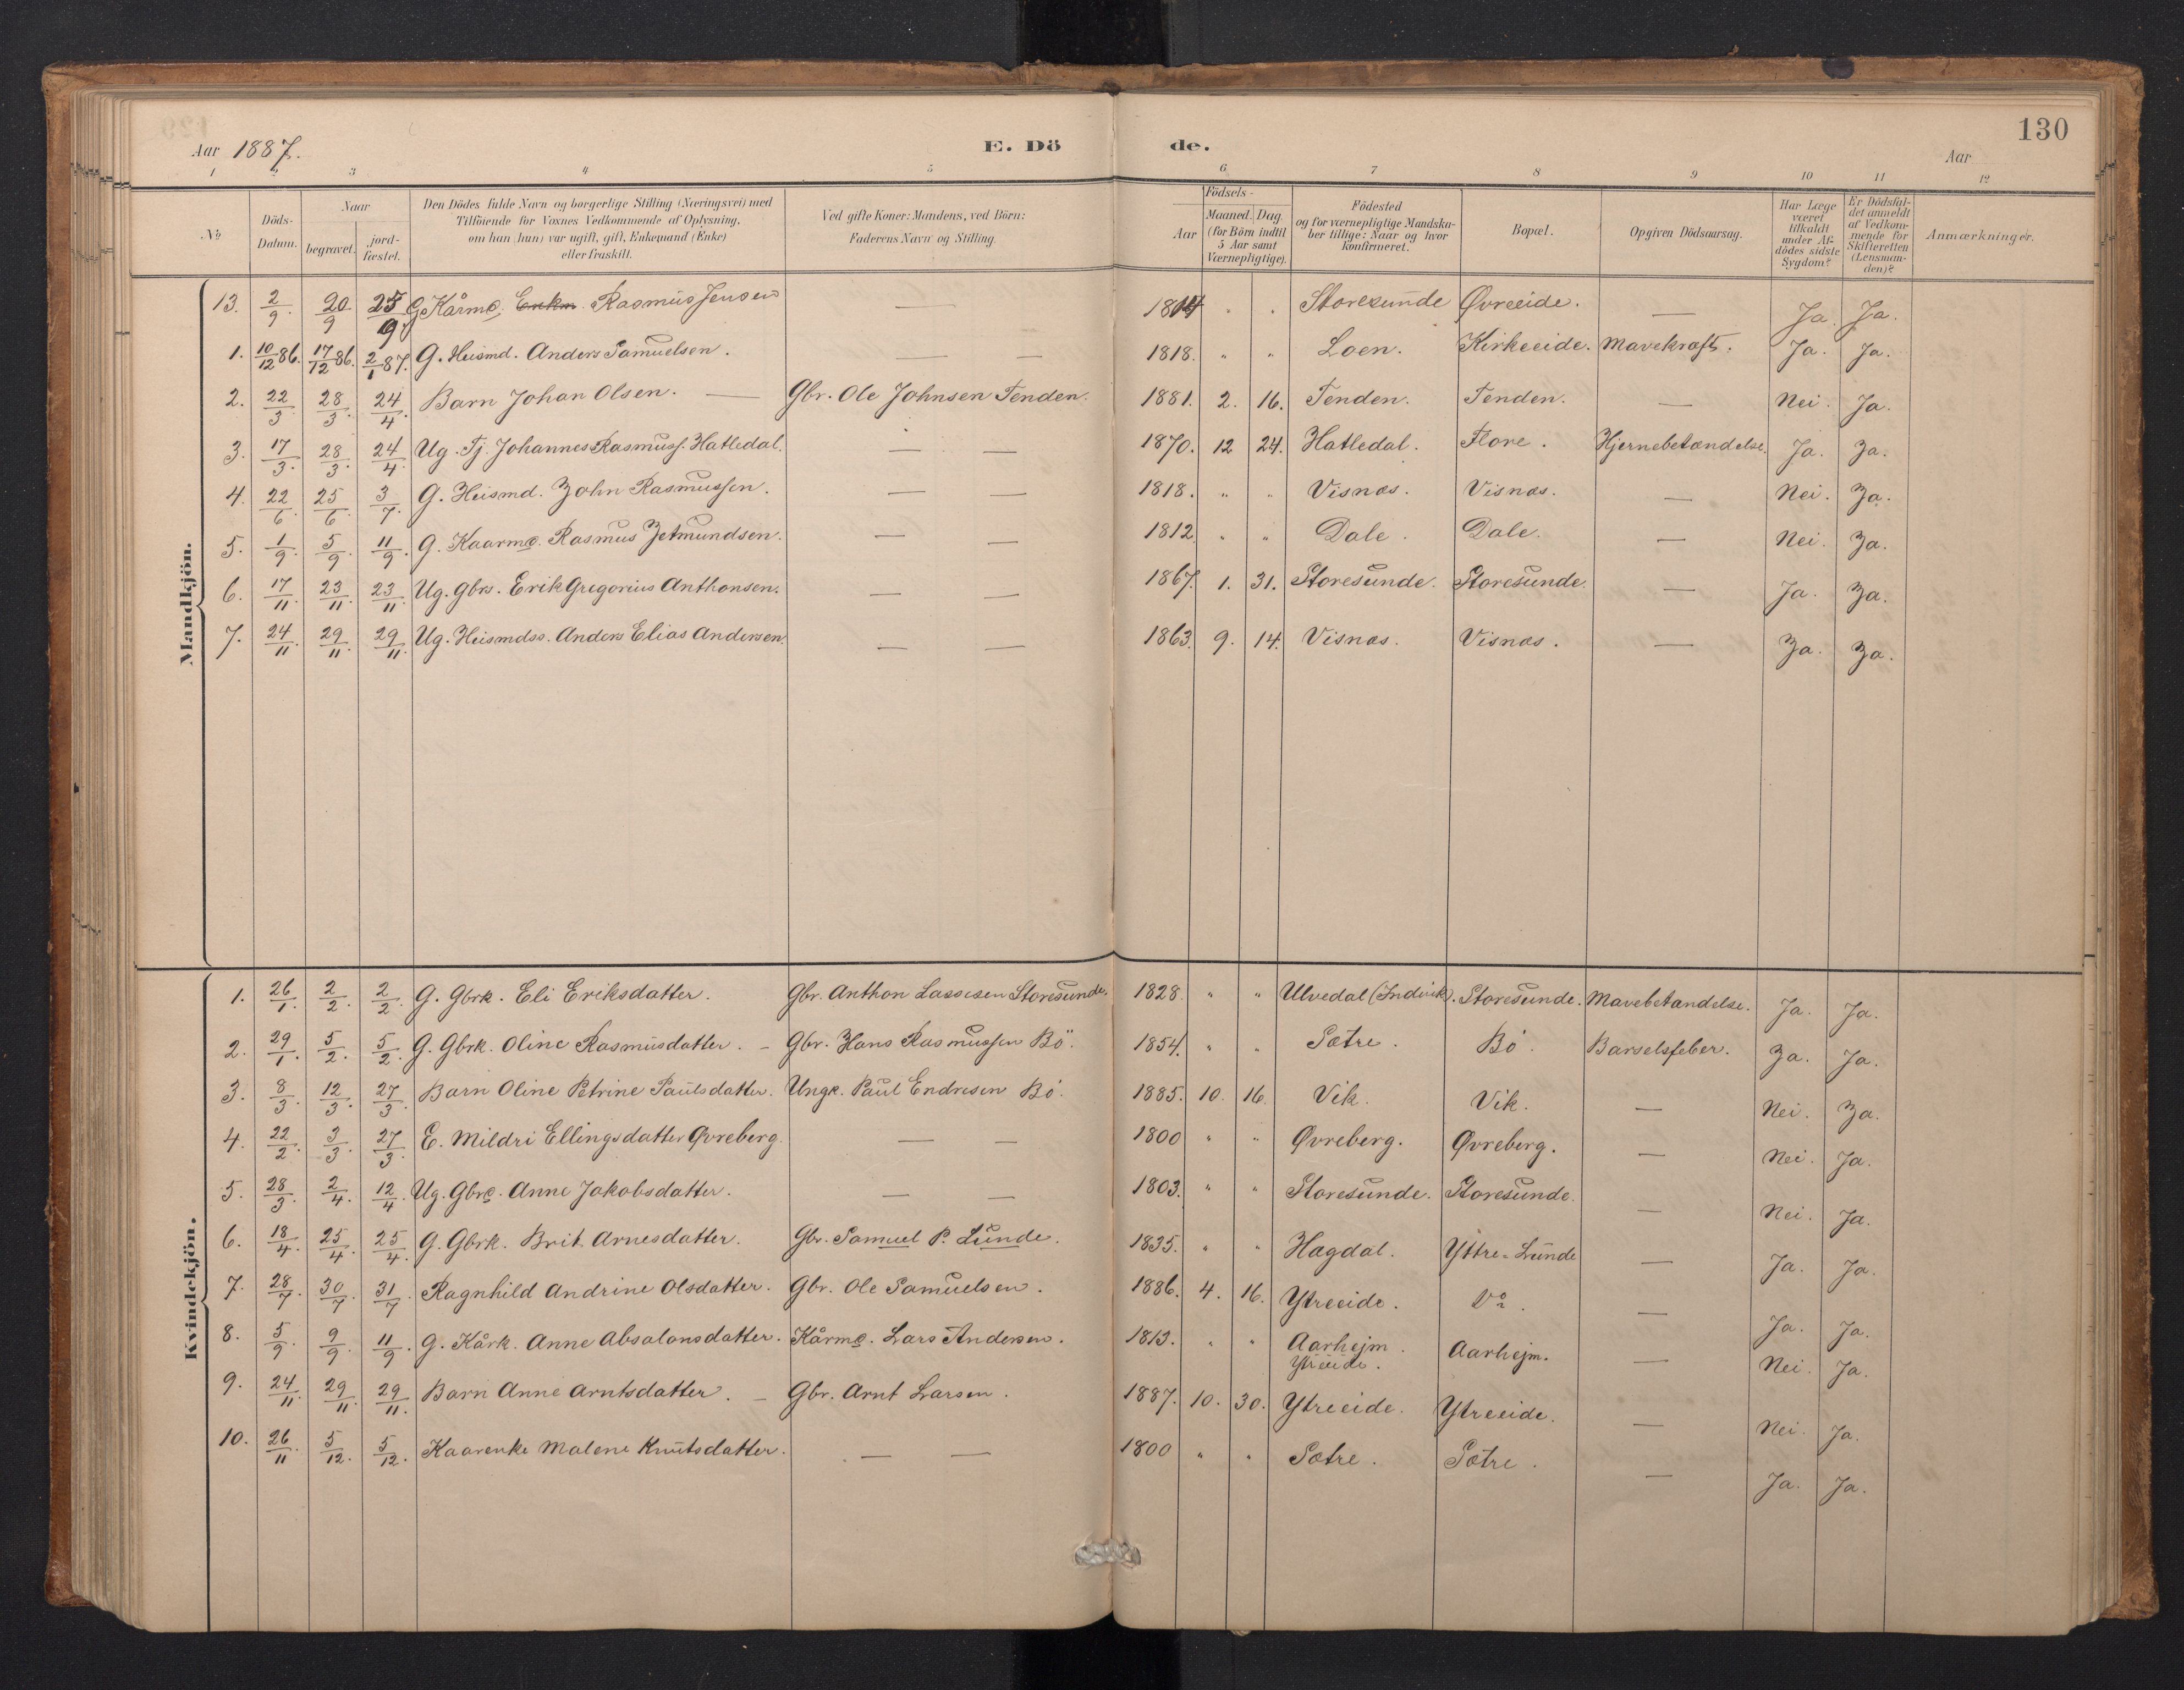 130
Aar 1887.
E. Dö de.
Aar
1 2 3 4 5 6 7 8 9 10 11 12
No
Döds-Datum.
Naar begravet. jord-fæstet.
Den Dödes fulde Navn og borgerlige Stilling (Næringsvei) med
Tilföiende for Voxnes Vedkommende af Oplysning,
om han (hun) var ugift, gift, Enkemand (Enke)
eller fraskilt.
Ved gifte Koner: Mandens, ved Börn:
Faderens Navn og Stilling.
Födsels-
Aar
Maaned. Dag.
(for Börn indtil
5 Aar samt
Værnepligtige).
Födested
og for værnepligtige Mandska-
ber tillige: Naar og hvor
konfirmeret.
Bopæl.
Opgiven Dödsaarsag.
Har Læge
været
tilkaldt
under Af-
dödes sidste
Sygdom?
Er Dödsfal-
det anmeldt
af Vedkom-
mende for
Skifteretten
(Lensman-
den)?
Anmærkninger.
Mandkjön.
13. 2/9. 20/9 25/9 G Kårme. Enkm. Rasmus Jensen — 1814 " " Storesunde Øvreeide. — Ja. Ja.
1. 10/12 86. 17/12 86. 2/1 87. G. Huismd. Anders Samuelsen. — — 1818. " " Loen. Kirkeeide. Mavekræft. Ja. Ja.
2. 22/3 28/3. 24/4 Barn Johan Olsen. — Gbr. Ole Johnsen Tenden. 1881. 2. 16. Tenden. Tenden. — Nei. Ja.
3. 17/3. 28/3. 24/4. Ug. Tj. Johannes Rasmuss. Hatledal. — — 1870. 12 24. Hatledal. Flore. Hjernebetændelse. Ja. Ja.
4. 22/6 25/6. 3/7. G. Huismd. John Rasmussen. — — 1818. " " Visnæs. Visnæs. — Nei. Ja.
5. 1/9. 5/9. 11/9. G. Kaarme. Rasmus Jetmundsen. — — 1812. " " Dale. Dale. — Nei. Ja.
6. 17/11. 23/11. 23/11. Ug. Gbrs. Erik Gregorius Anthonsen. — — 1867. 1. 31. Storesunde. Storesunde. — Ja. Ja.
7. 24/11. 29/11. 29/11. Ug. Huismdss. Anders Elias Andersen. — — 1863. 9. 14. Visnæs. Visnæs. — Ja. Ja.
Kvindekjön.
1. 26/1. 2/2. 2/2. G. Gbrk. Eli Eriksdatter. Gbr. Anthon Lassesen Storesunde. 1828. " " Ulvedal (Indvik). Storesunde. Mavebetændelse. Ja. Ja.
2. 29/1. 5/2. 5/2. G. Gbrk. Oline Rasmusdatter. — Gbr. Hans Rasmussen Bö. 1854. " " Sætre. Bö. Barselsfeber. Ja. Ja.
3. 8/3. 12/3. 27/3. Barn Oline Petrine Paulsdatter. Ungk. Paul Endresen Bö. 1885. 10. 16. Vik. Vik. — Nei. Ja.
4. 22/2 3/3. 27/3. E. Mildri Ellingsdatter Øvreberg. — — 1800 " " Øvreberg. Øvreberg. — Nei. Ja.
5. 28/3. 2/4. 12/4. Ug. Gbre. Anne Jakobsdatter. — — 1803. " " Storesunde. Storesunde. — Nei. Ja.
6. 18/4. 25/4. 25/4. G. Gbrk. Brit Arnesdatter. Gbr. Samuel P. Lunde. 1835. " " Hægdal. Yttre-Lunde — Ja. Ja.
7. 28/7. 30/7 31/7 Ragnhild Andrine Olsdatter. Gbr. Ole Samuelsen. 1886. 4. 16. Ytreeide. Do. — Ja. Ja.
8. 5/9. 9/9. 11/9. G. Kårk. Anne Absalonsdatter. Kårme. Lars Andersen. 1813. " " Aarhejm. Aarhejm. — Nei. Ja.
Ytreeide.
9. 24/11. 29/11 29/11. Barn Anne Arntsdatter. — Gbr. Arnt Larsen. 1887. 10. 30. Ytreeide. Ytreeide. — Nei. Ja.
10. 26/11 5/12. 5/12. Kaarenke Malene Knutsdatter. — — 1800 " " Sætre. Sætre. — Ja. Ja.